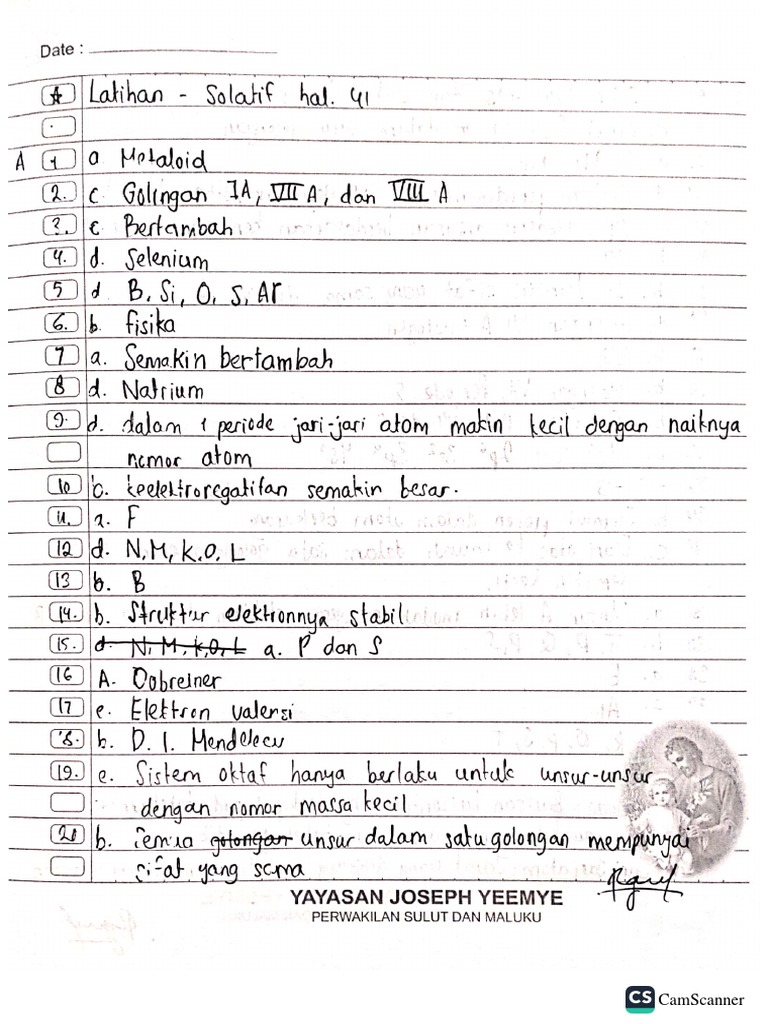 Date :
A Latihan - Solatif hal. 41
A 1 a Metaloid
2. c. Golingan IA, VII A, dan VIII A
3. c Bertambah
4. d. Selenium
5 d B, Si, O, S, Ar
6. b. fisika
7 a. Semakin bertambah
8 d. Natrium
9. d. dalam 1 periode jari-jari atom makin kecil dengan naiknya
nomor atom
10 keelektronegatifan semakin besar.
11. a. F
12 d. N, M, K, O, L
13 b. B
14. b. Struktur elektronnya stabil
15. d. N, M, K, O, L a. P dan S
16 A. Dobreiner
17 e. Elektron valensi
18. b. D. I. Mendeleev
19. e. Sistem oktaf hanya berlaku untuk unsur-unsur
dengan nomor massa kecil
20 b. Semua golongan unsur dalam satu golongan mempunyai
sifat yang sama
YAYASAN JOSEPH YEEMYE
PERWAKILAN SULUT DAN MALUKU
CS CamScanner